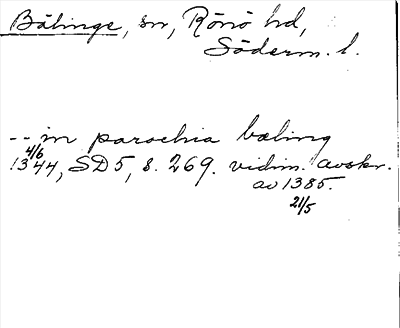 Bälinge, sn, Rönö hd,
Söderm. l.
-- in parochia bæling
4/6
1344, SD 5, s. 269. vidim. avskr.
av 1385.
21/5